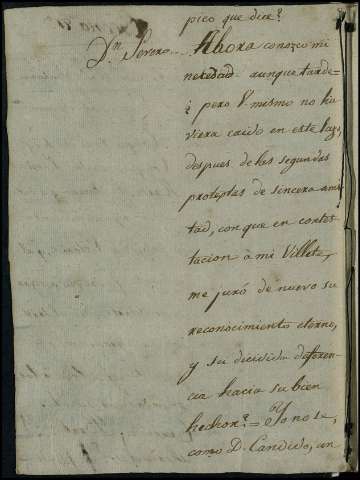 pico que dice?
Dn. Severo. Ahora conozco mi
necedad aunque tarde
¿pero V. mismo no hu
viera caido en este lazo,
despues de las segundas
protextas de sincera amis
tad, con que en contes
tacion à mi Villete,
me juró de nuevo su
reconocimiento eterno,
y su decidida deferen
cia hacia su bien
hechor? = Yo no se,
como D. Candido, un